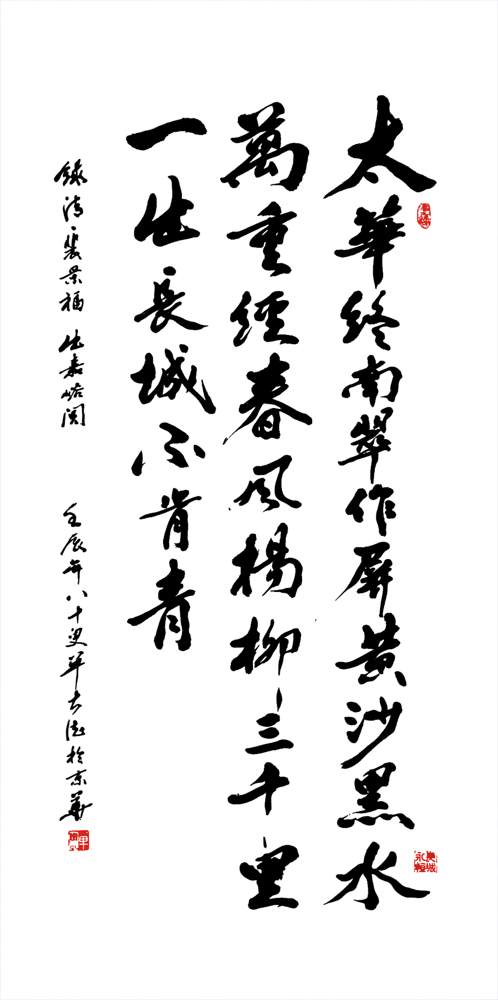 太華終南翠作屏黄沙黑水
萬重經春風楊柳三千里
一出長城不肯青
錄清裴景福出嘉峪関
壬辰年八十叟單大德於京華